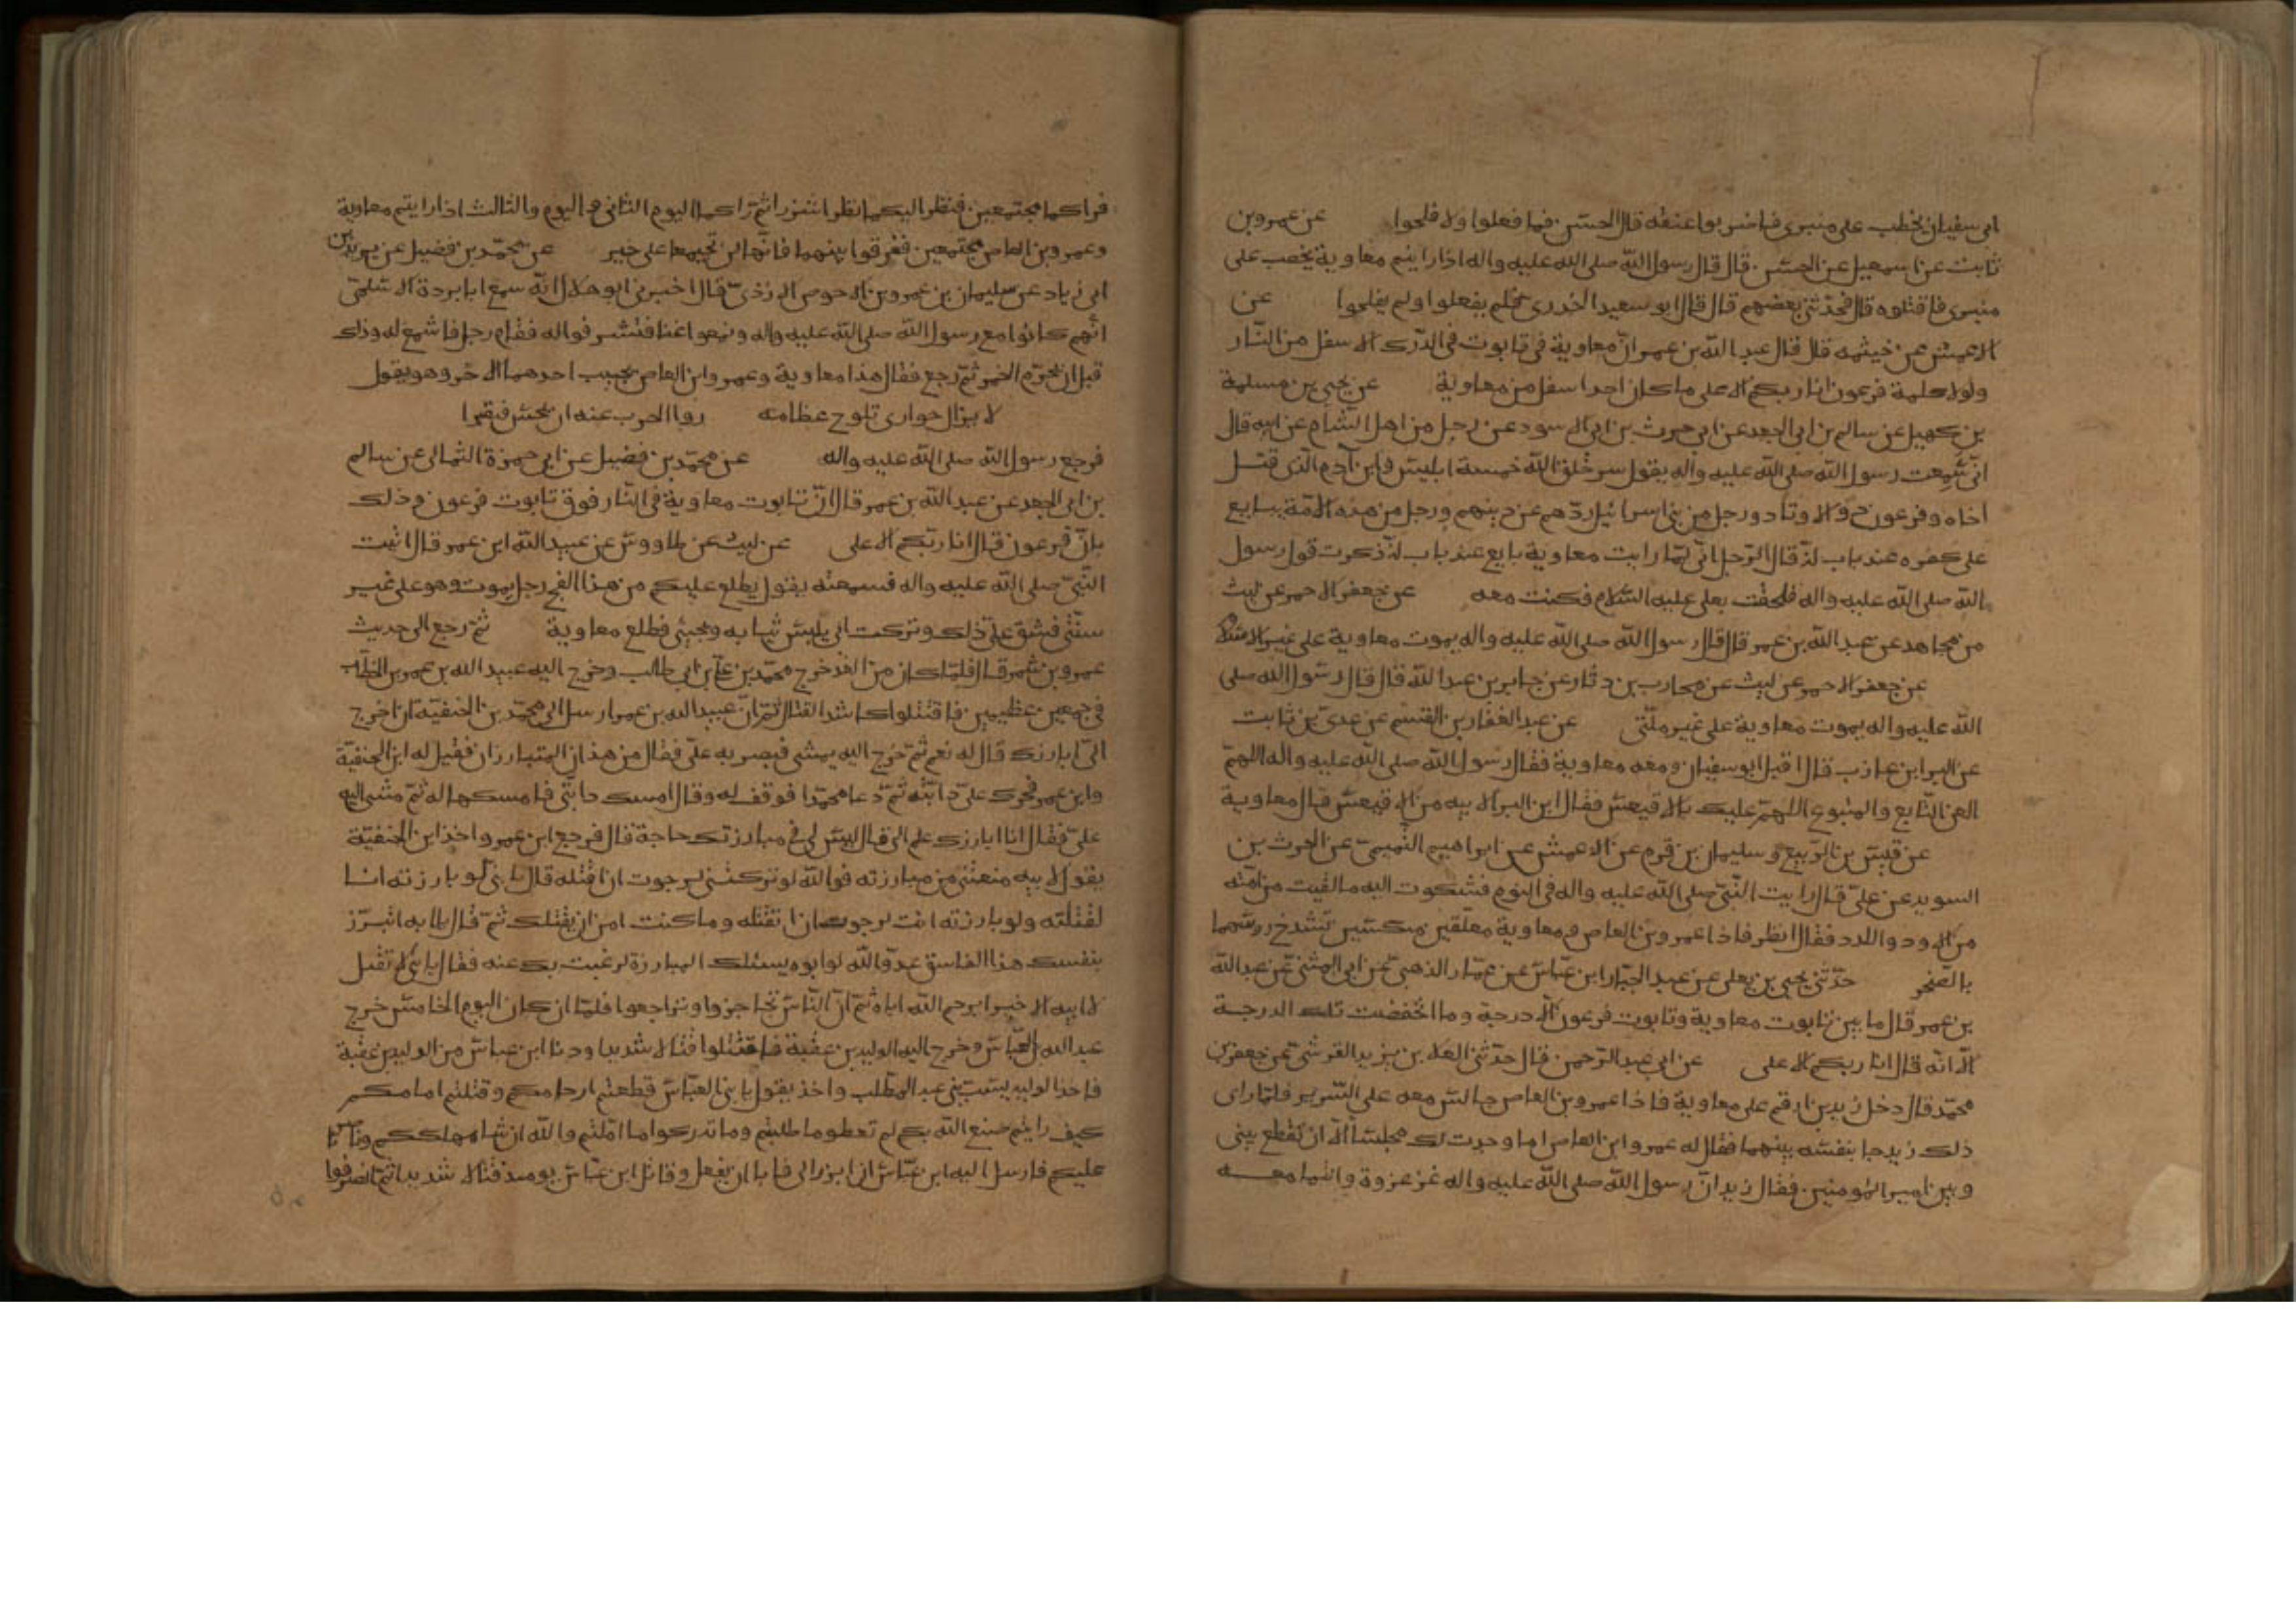 ابى سفيان يخطب على منبرى فاضربوا عنقه قال الحسن فما فعلوا ولا فلحوا عن عمرو بن
ثابت عن اسمعيل عن الحسن قال قال رسول الله صلى الله عليه واله اذا رايتم معاوية يخطب على
منبرى فاقتلوه قال فحدثنى بعضهم قال قال ابو سعيد الخدرى فلم يفعلوا ولم يفلحوا عن
الاعمش عن خيثمه قال قال عبد الله بن عمر ان معاوية فى تابوت فى الدرك الاسفل من النار
ولولا كلمة فرعون انا ربكم الاعلى ما كان احد اسفل من معاوية عن يحيى بن مسلمة
بن كهيل عن سالم بن ابى الجعد عن ابى حرث بن ابى الاسود عن رجل من اهل الشام عن ابيه قال
انى سمعت رسول الله صلى الله عليه واله يقول سر خلق الله خمسة ابليس وابن آدم الذى قتل
اخاه وفرعون ذو الاوتاد ورجل من بنى اسرائيل ردهم عن دينهم ورجل من هذه الامة يبايع
على كفره عند باب لد قال الرجل انى لما رايت معاوية بايع عند باب لد ذكرت قول رسول
الله صلى الله عليه واله فلحقت بعلى عليه السلام فكنت معه عن جعفر الاحمر عن ليث
من مجاهد عن عبد الله بن عمر قال قال رسول الله صلى الله عليه واله يموت معاوية على غير الاسلام
عن جعفر الاحمر عن ليث عن محارب بن دثار عن جابر بن عبد الله قال قال رسول الله صلى
الله عليه واله يموت معاوية على غير ملتى عن عبد الغفار بن القسم عن عدى بن ثابت
عن البرا بن عازب قال اقبل ابو سفيان ومعه معاوية فقال رسول الله صلى الله عليه واله اللهم
العن التابع والمتبوع اللهم عليك بالاقيعس فقال ابن البرا لابيه من الاقيعس قال معاوية
عن قيس بن الربيع وسليمان بن قرم عن الاعمش عن ابراهيم التميمى عن الحرث بن
السويد عن على قال رايت النبى صلى الله عليه واله فى النوم فشكوت اليه ما لقيت من امته
من الاود واللدد فقال انظر فاذا عمرو بن العاص ومعاوية معلقين منكسين تشدخ روسهما
بالصخر حدثنى يحيى بن يعلى عن عبد الجبار ابن عباس عن عمار الذهبى عن ابى المثنى عن عبد الله
بن عمر قال ما بين تابوت معاوية وتابوت فرعون الا درجة وما انخفضت تلك الدرجة
الا انه قال انا ربكم الاعلى عن ابى عبد الرحمن قال حدثنى العلا بن يزيد القرشى عن جعفر بن
محمد قال دخل زيد بن ارقم على معاوية فاذا عمرو بن العاص جالس معه على السرير فلما راى
ذلك زيد جا بنفسه بينهما فقال له عمرو ابن العاص اما وجدت لك مجلسا الا ان تقطع بينى
وبين امير المؤمنين فقال زيد ان رسول الله صلى الله عليه واله غز غزوة وانتما معه
فراكما مجتمعين فنظر اليكما نظرا شزرا ثم راكما اليوم الثانى واليوم والثالث اذا رايتم معاوية
وعمرو بن العاص مجتمعين ففرقوا بينهما فانهما لن تجتمعا على خير عن محمد بن فضيل عن يزيد بن
ابى زياد عن سليمان بن عمرو بن الاحوص الازدى قال اخبرنى ابو هلال انه سمع ابا بردة الاسلمى
انهم كانوا مع رسول الله صلى الله عليه واله وسمعوا غنا فتشرفوا له فقام رجل فاستمع له وذلك
قبل ان تحرم الخمر ثم رجع فقال هذا معاوية وعمرو ابن العاص يجيب احدهما الاخر وهو يقول
لا يزال حوارى تلوح عظامه زوا الحرب عنه ان يحس فيقبرا
فرجع رسول الله صلى الله عليه واله عن محمد بن فضيل عن ابى حمزة الثمالى عن سالم
بن ابى الجعد عن عبد الله بن عمر قال ان تابوت معاوية فى النار فوق تابوت فرعون وذلك
بان فرعون قال انا ربكم الاعلى عن ليث عن طاووس عن عبد الله ابن عمر قال اتيت
النبى صلى الله عليه واله فسمعته يقول يطلع عليكم من هذا الفج رجل يموت وهو على غير
سنتى فشق على ذلك وتركت ابى يلبس ثيابه ويجيئى فطلع معاوية ثم رجع الى حديث
عمرو بن شمر قال فلما كان من الغد خرج محمد بن على بن ابى طالب وخرج اليه عبيد الله بن عمر بن الخطاب
فى جمعين عظيمين فاقتتلوا كاشد القتال ثم ان عبيد الله بن عمر ارسل الى محمد بن الحنفية ان اخرج
الى ابارزك قال له نعم ثم خرج اليه يمشى فبصر به على فقال من هذان المتبارزان فقيل له ابن الحنفية
وابن عمر فحرك على دابته ثم دعا محمدا فوقف له وقال امسك دابتى فامسكها له ثم مشى اليه
على فقال انا ابارزك علم الى قال ليس لى فى مبارزتك حاجة قال فرجع ابن عمر واخذ ابن الحنفية
يقول لابيه منعتنى من مبارزته فوالله لو تركتنى لرجوت ان اقتله قال يا بنى لو بارزته انا
لقتلته ولو بارزته انت لرجوت ان تقتله وما كنت امن ان يقتلك ثم قال يا ابه اتبرز
بنفسك هذا الفاسق عدو الله لو ابوه يسئلك المبارزة لرغبت بك عنه فقال يا بنى لا تقل
لابيه الا خيرا يرحم الله اباه ثم ان الناس تحاجزوا وتراجعوا فلما ان كان اليوم الخامس خرج
عبد الله بن العباس وخرج اليه الوليد بن عقبة فاقتتلوا قتالا شديدا ودنا ابن عباس من الوليد بن عقبة
فاخذ الوليد يسب بنى عبد المطلب واخذ يقول يا بن العباس قطعتم ارحامكم وقتلتم امامكم
كيف رايتم صنع الله بكم لم تعطوا ما طلبتم وما تدركوا ما املتم والله ان شا مهلككم وناصرنا
عليكم فارسل اليه ابن عباس ان ابرز الى فابا ان يفعل وقاتل ابن عباس يومئذ قتالا شديدا ثم انصرفوا